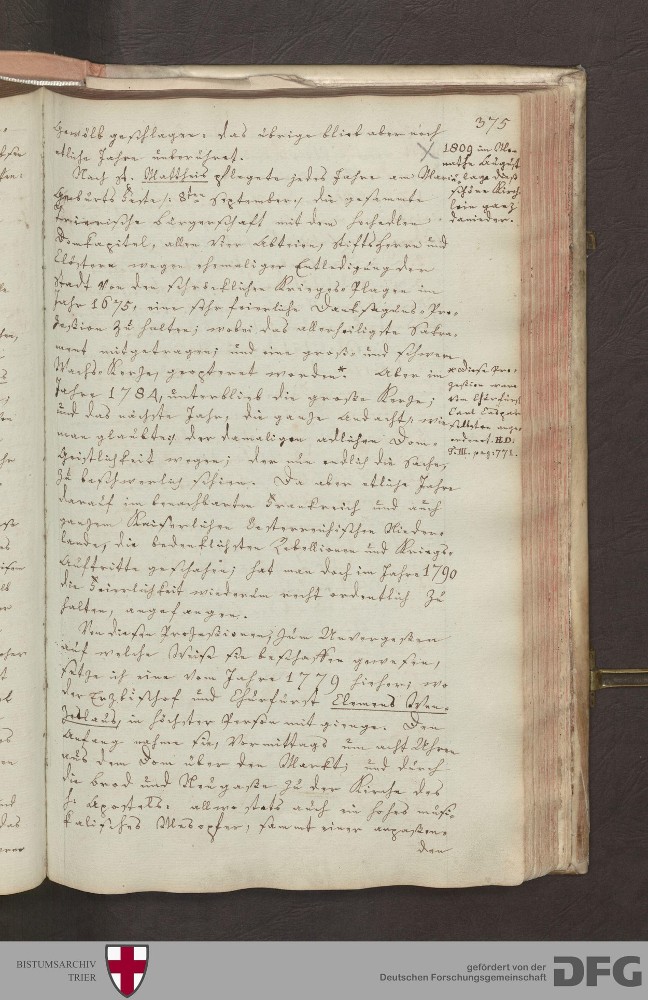 375
Gewölb geschlagen: das übrige blieb aber noch
etliche Jahre unberühret.
Nach St. Mattheis pflegete jedes Jahre am Mariä
Geburts Feste /: 8ten Septembers :/ die gesammte
Trierische Bürgerschaft mit dem Hochedlen
Domkapitel, allen vier Abteien, Stiftsherrn und
Klöstern wegen ehemaliger Entledigung der
Stadt von den schröcklichen Krieges-Plagen im
Jahr 1675, eine sehr feierliche Danksaguns-Pro-
zession zu halten; wobei das allerheiligste Sakra-
ment mitgetragen; und eine große und schwere
Wachs-Kerze, geopferet worden.* Aber im
Jahre 1784, unterblieb die große Kerze;
und das nächste Jahr, die ganze Andacht, wie
man glaubte, der damaligen adlichen Dom-
Geistlichkeit wegen; der nun endlich die Sache,
zu beschwerlich schien. Da aber etliche Jahre
darauf im benachbarten Frankreich und auch
ganzen Kaiserlichen Oesterreichischen Nieder-
lande, die bedenklichsten Rebellionen und Kriegs-
Auftritte geschahen; hat man doch im Jahre 1790
die Feierlichkeit wiederum recht ordentlich zu
halten, angefangen.
Von diesen Prozessionen, zum Unvergessen
auf welche Weise sie beschaffen gewesen,
setze ich eine vom Jahre 1779 hieher; wo
der Erzbischof und Churfürst Clemens Wen-
zeslaus, in höchster Person mit gienge. Den
Anfang nahme sie, Vormittags um acht Uhren
aus dem Dom über den Markt, und durch
die Brod und Neugasse zu der Kirche des
h. Apostels: allwo stets auch ein hohes musi-
kalisches Mesopfer, sammt einer anpassen-
den
1809 im Mo-
nathe August
lage diese
schöne Kirch-
lein ganz
danieder.
* Diese Pro-
zession ware
von Churfürst
Carl Caspar
selbsten ange-
ordnet. H.D.
T. III. pag: 772.
BISTUMSARCHIV
TRIER
gefördert von der
Deutschen Forschungsgemeinschaft
DFG